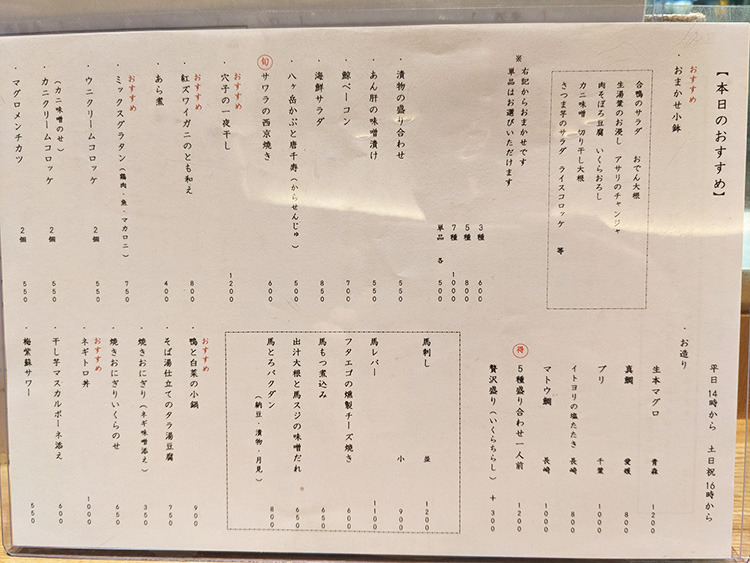 【本日のおすすめ】
平日 14時から 土日祝 16時から
おすすめ
・おまかせ小鉢
合鴨のサラダ おでん大根
生湯葉のお浸し アサリのチャンジャ
肉そぼろ豆腐 いくらおろし
カニ味噌 切り干し大根
さつま芋のサラダ ライスコロッケ 等
※右記からおまかせです
単品はお選びいただけます
3種 600
5種 800
7種 1000
単品 各500
・漬物の盛り合わせ 550
・あん肝の味噌漬け 550
・鯨ベーコン 700
・海鮮サラダ 850
・八ヶ岳かぶと唐千寿(からせんじゅ) 500
旬
・サワラの西京焼き 600
おすすめ
・穴子の一夜干し 1200
おすすめ
・紅ズワイガニのとも和え 800
・あら煮 400
おすすめ
・ミックスグラタン(鶏肉・魚・マカロニ) 750
・ウニクリームコロッケ 2個 550
(カニ味噌のせ)
・カニクリームコロッケ 2個 550
・マグロメンチカツ 2個 550
・お造り
生本マグロ 青森 1200
真鯛 愛媛 800
ブリ 千葉 1000
イトヨリの塩たたき 長崎 800
マトウ鯛 長崎 1000
得
5種盛り合わせ一人前 1200
贅沢盛り(いくらちらし) +300
馬刺し 並 1200
小 900
馬レバー 1100
フタエゴの燻製チーズ焼き 600
馬もつ煮込み 650
出汁大根と馬スジの味噌だれ 650
馬とろバクダン 800
(納豆・漬物・月見)
おすすめ
・鴨と白菜の小鍋 900
・そば湯仕立てのタラ湯豆腐 750
・焼きおにぎり(ネギ味噌添え) 350
・焼きおにぎりいくらのせ 650
おすすめ
・ネギトロ丼 1000
・干し芋マスカルポーネ添え 600
・梅紫蘇サワー 550